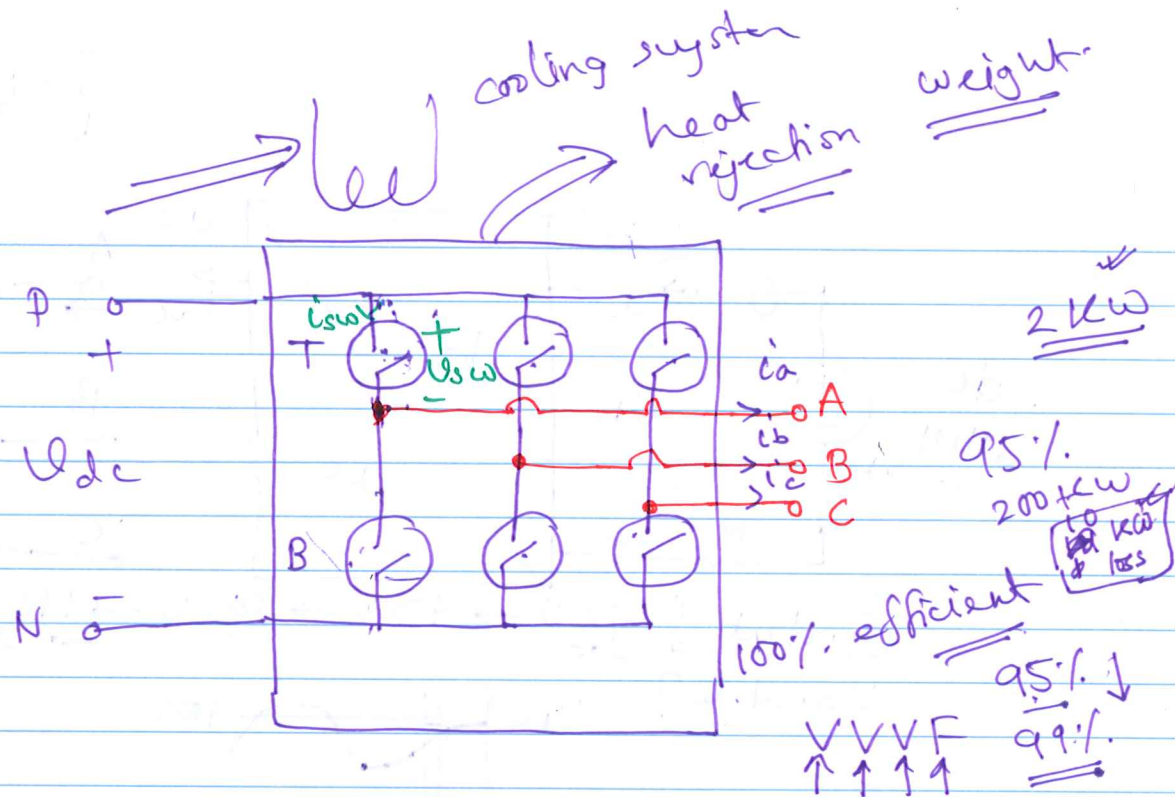 cooling system
heat
rejection
weight.
P.
+
isw
T
+
Vsw
-
Vdc
B
-
N
ia
A
ib
B
ic
C
2 KW
95%.
200 KW
10 KW
loss
100%. efficient
95%. ↓
99%.
VVVF
↑ ↑ ↑ ↑